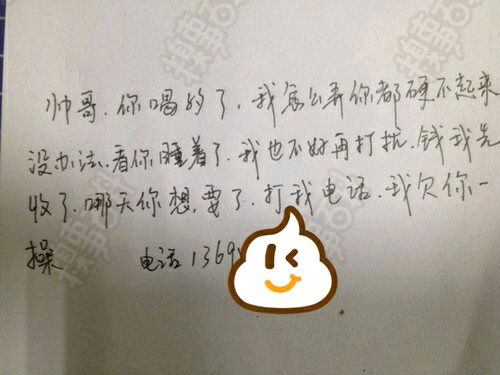 帅哥.你喝的了.我怎么弄你都硬不起来
没办法.看你睡着了.我也不好再打扰.钱我先
收了.哪天你想.要了.打我电话.我欠你一
操. 电话1369
找事儿
找事儿
找事儿